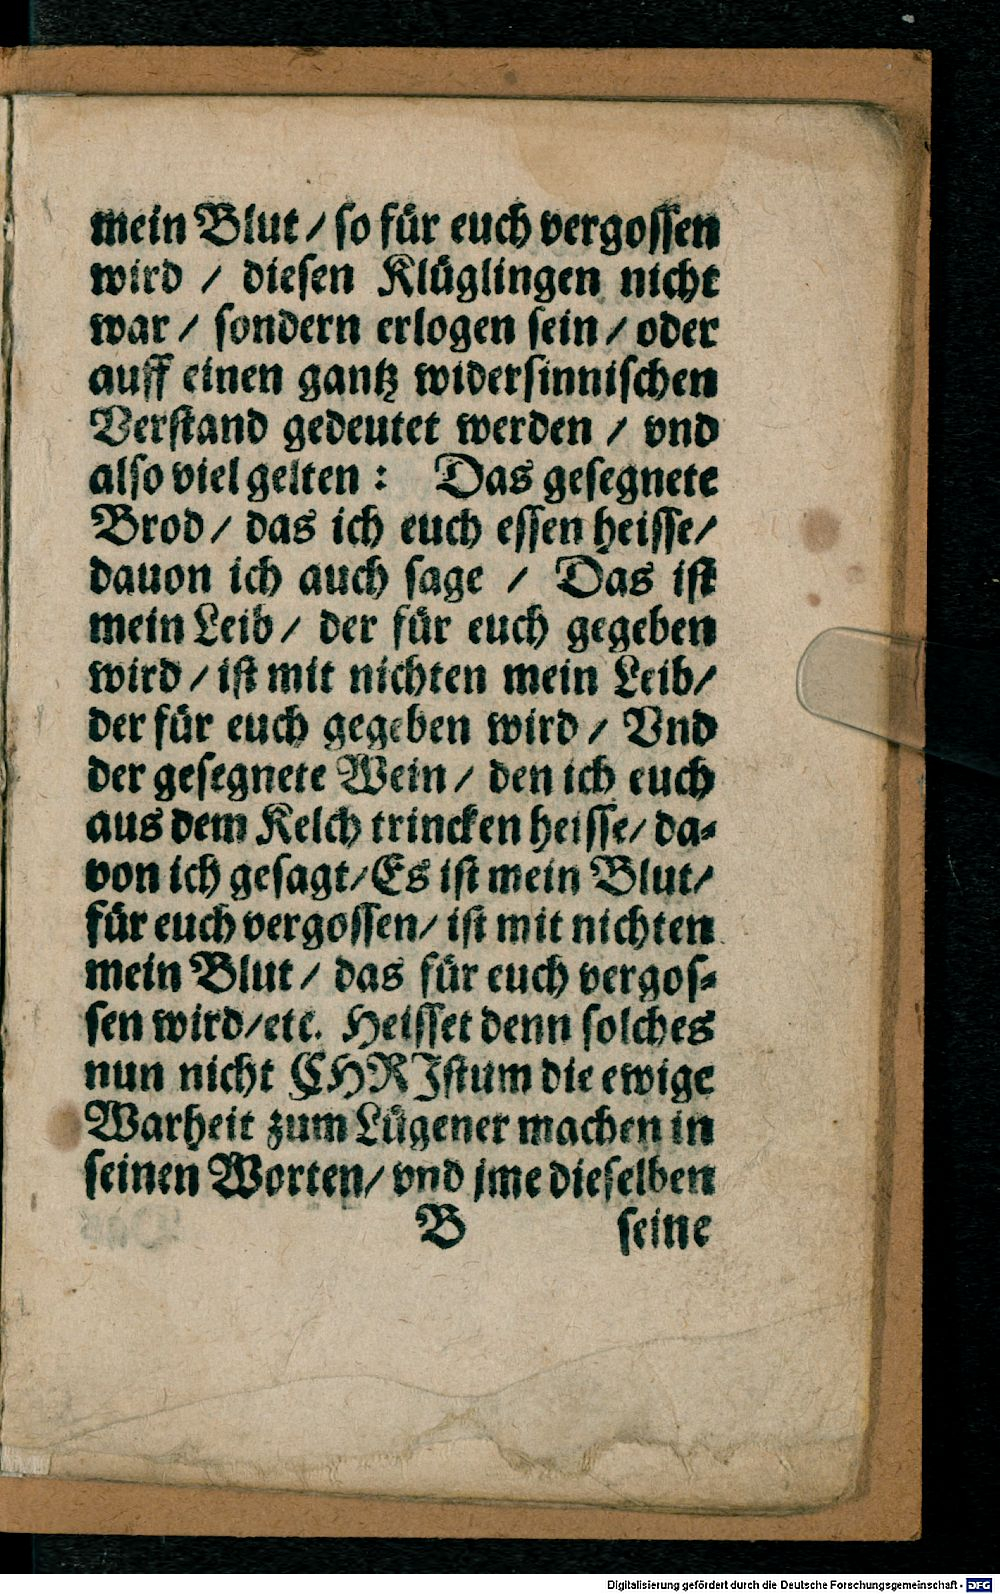 mein Blut / so für euch vergossen
wird / diesen Klüglingen nicht
war / sondern erlogen sein / oder
auff einen gantz widersinnischen
Verstand gedeutet werden / vnd
also viel gelten : Das gesegnete
Brod / das ich euch essen heisse /
dauon ich auch sage / Das ist
mein Leib / der für euch gegeben
wird / ist mit nichten mein Leib /
der für euch gegeben wird / Vnd
der gesegnete Wein / den ich euch
aus dem Kelch trincken heisse / da-
von ich gesagt / Es ist mein Blut /
für euch vergossen / ist mit nichten
mein Blut / das für euch vergos-
sen wird / etc. Heisset denn solches
nun nicht CHRIstum die ewige
Warheit zum Lügener machen in
seinen Worten / vnd jme dieselben
B seine
Digitalisierung gefördert durch die Deutsche Forschungsgemeinschaft - DFG